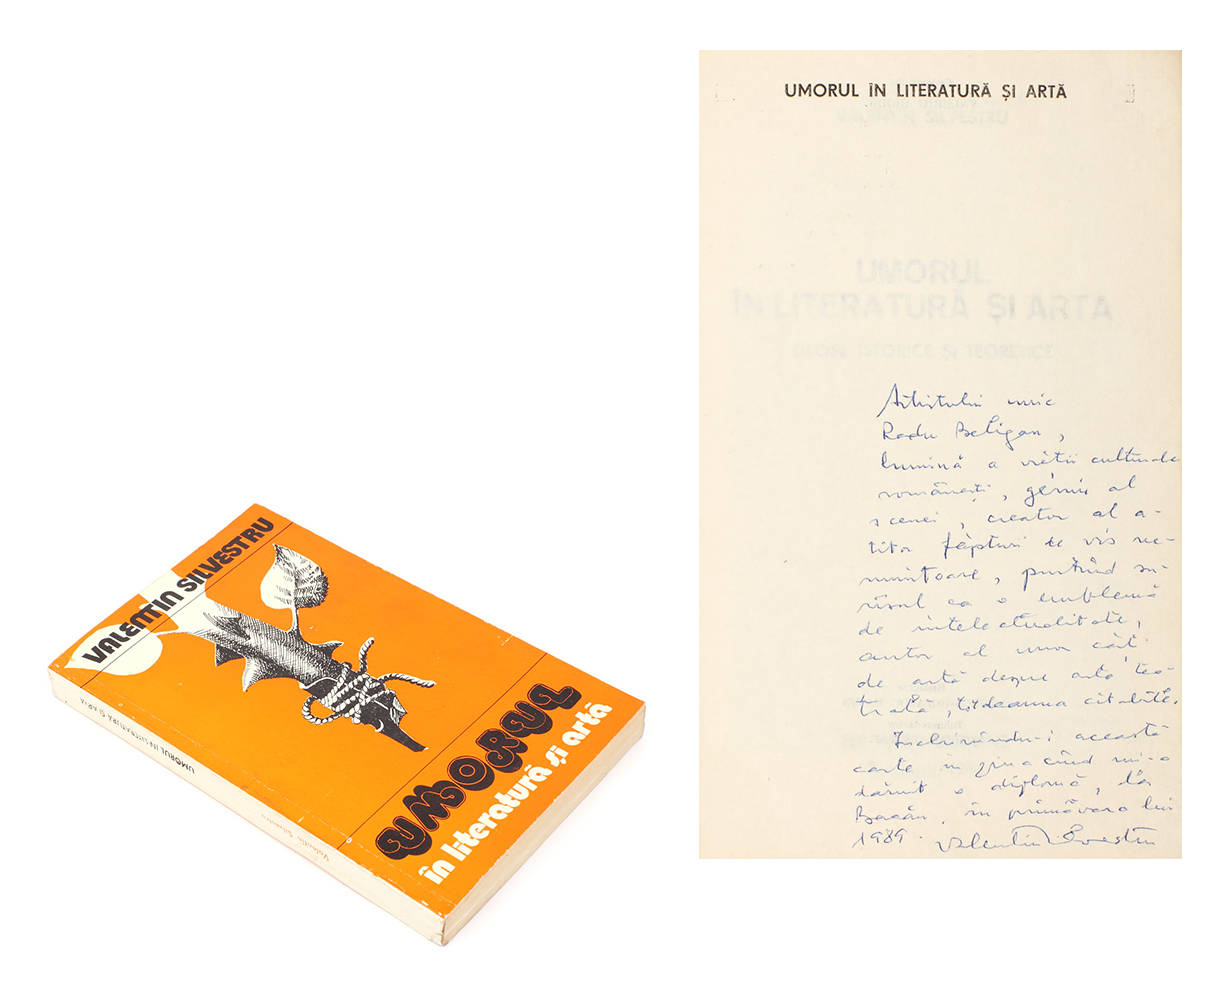 VALENTIN SILVESTRU
UMORUL
în literatură și artă
UMORUL ÎN LITERATURĂ ȘI ARTĂ
Valentin Silvestru
UMORUL ÎN LITERATURĂ ȘI ARTĂ
VALENTIN SILVESTRU
UMORUL
ÎN LITERATURĂ ȘI ARTĂ
GLOSE ISTORICE ȘI TEORETICE
Artistului unic
Radu Beligan,
lumină a vieții culturale
românești, geniu al
scenei, creator al a-
tîtor făpturi de vis ne-
muritoare, purtînd su-
rîsul ca o emblemă
de intelectualitate,
autor al unor cărți
de artă despre artă tea-
trală, totdeauna citabile.
Închinîndu-i această
carte, în ziua cînd mi-a
dăruit o diplomă, la
Bacău, în primăvara lui
1989. Valentin Silvestru